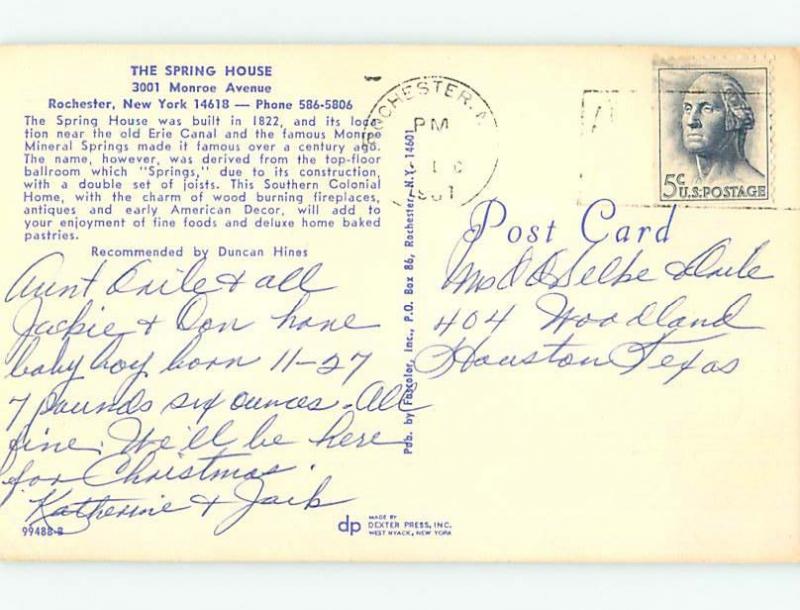 THE SPRING HOUSE
3001 Monroe Avenue
Rochester, New York 14618 — Phone 586-5806
The Spring House was built in 1822, and its loca-
tion near the old Erie Canal and the famous Monroe
Mineral Springs made it famous over a century ago.
The name, however, was derived from the top-floor
ballroom which "Springs," due to its construction,
with a double set of joists. This Southern Colonial
Home, with the charm of wood burning fireplaces,
antiques and early American Decor, will add to
your enjoyment of fine foods and deluxe home baked
pastries.
Recommended by Duncan Hines
Aunt Orile & all
Jackie & Don have
baby boy born 11-27
7 pounds six ounces. All
fine. We'll be here
for Christmas.
Katherine & Jack
99488-B
Pub. by Fascolor, Inc., P.O. Box 86, Rochester, N.Y. 14601
dp
MADE BY
DEXTER PRESS, INC.
WEST NYACK, NEW YORK
ROCHESTER, N
PM
5c
U.S. POSTAGE
Post Card
404 Woodland
Houston Texas